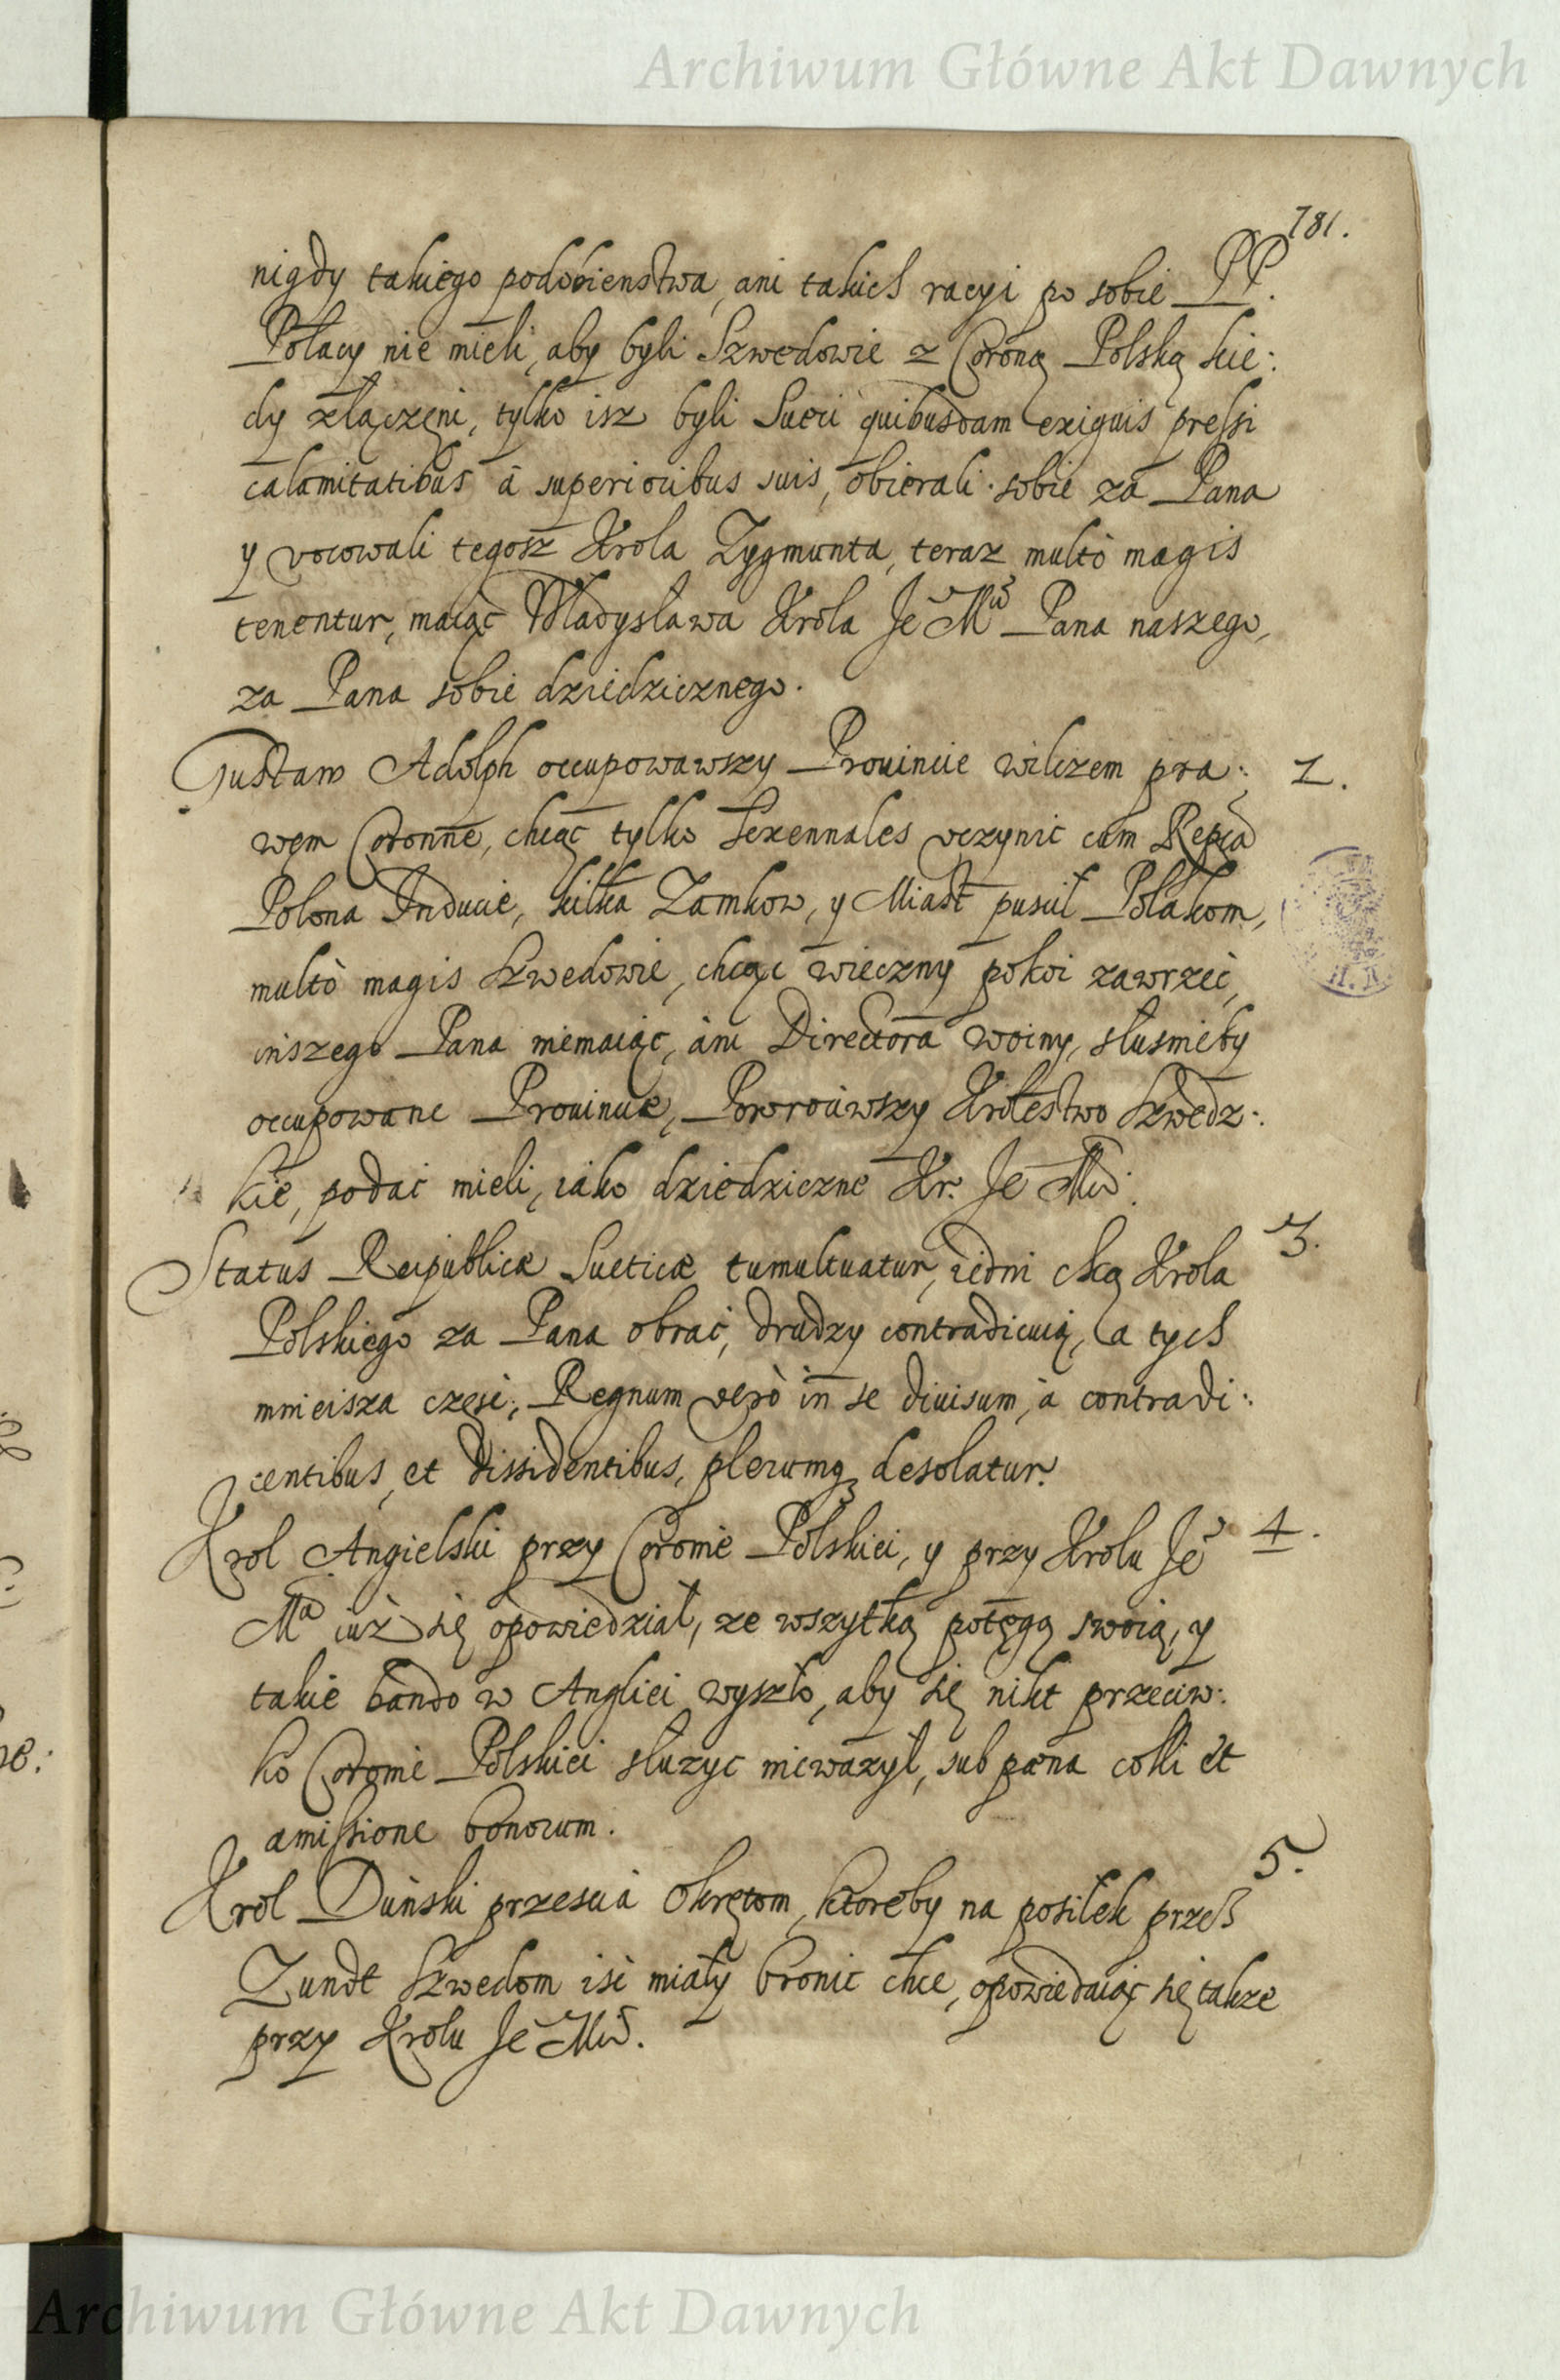 Archiwum Główne Akt Dawnych
781.
nigdy takiego podobienstwa, ani takich racyi po sobie PP.
Polacy nie mieli, aby byli Szwedowie z Coroną Polską kie:
dy złączeni, tylko isz byli Sueci quibusdam exiguis pressi
calamitatibus à superioribus suis, obierali sobie za Pana
y vocowali tegosz Krola Zygmunta, teraz multò magis
tenentur, maiąc Władysława Krola Je Mci Pana naszego,
za Pana sobie dziedzicznego.
Gustaw Adolph occupowawszy Prouincie wilczem pra: 2.
wem Coronne, chcąc tylko Sexennales vczynic cum Repca
Polona Inducie, kilka Zamkow, y Miast puscił Polakom,
multò magis Szwedowie, chcąc wieczny pokoi zawrzeć,
inszego Pana niemaiąc, ani Directora woiny, słusnieby
occupowane Prouincie, Powrociwszy Krolestwo Szwedz:
kie, podać mieli, iako dziedziczne Kr. Je Mci.
Status Reipublicæ Sueticæ tumultuatur, iedni chcą Krola 3.
Polskiego za Pana obrać, drudzy contradicuią, a tych
mnieisza częsć, Regnum verò in se diuisum, à contradi:
centibus, et dissidentibus, plerumq desolatur.
Krol Angielski przy Coronie Polskiei, y przy Krolu Je 4.
Mci iuż się opowiedział, ze wszytką potęgą swoią, y
takie bando w Angliei wyszło, aby się nikt przeciw:
ko Coronie Polskiei służyc nieważył, sub pæna colli et
amissione bonorum.
Krol Duński przescia Okrętom, ktoreby na posiłek przeß 5.
Zundt Szwedom isć miały bronic chce, opowiedaiąc się także
przy Krolu Je Mci.
Archiwum Główne Akt Dawnych